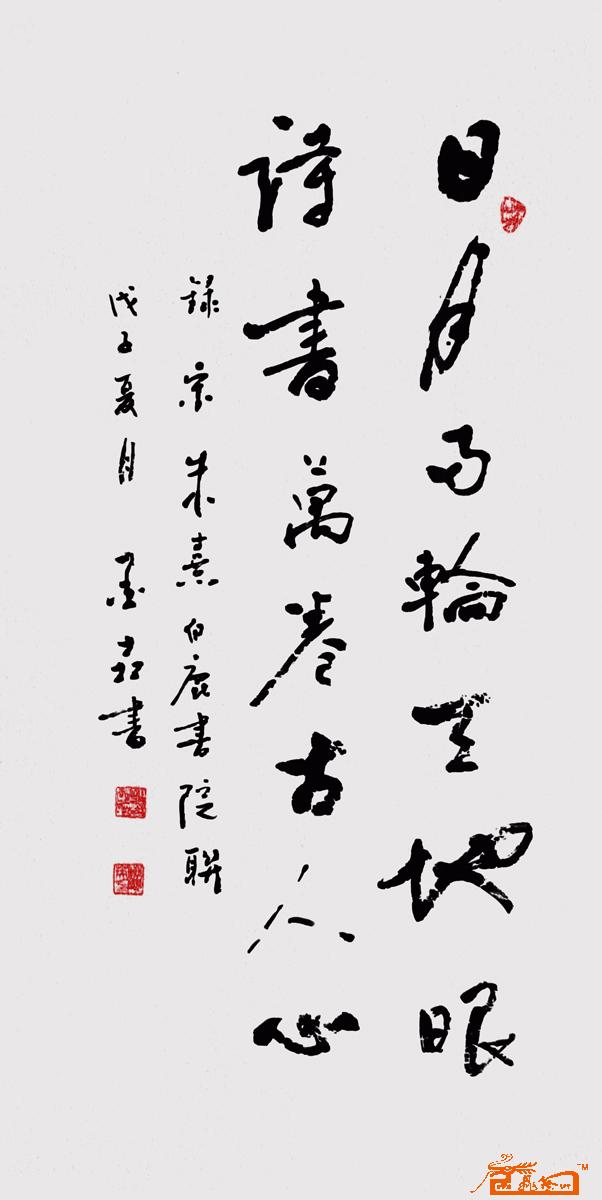 日月两輪天地眼
詩書萬卷古人心
錄宗朱熹白鹿書院聯
戊子夏月 墨
書